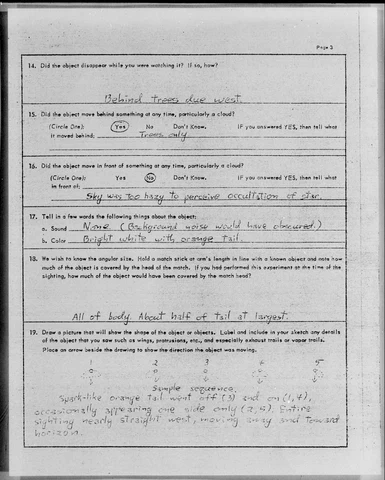 Page 3
14. Did the object disappear while you were watching it? If so, how?
Behind trees due west.
15. Did the object move behind something at any time, particularly a cloud?
(Circle One): Yes No Don't Know. IF you answered YES, then tell what
it moved behind: Trees only
16. Did the object move in front of something at any time, particularly a cloud?
(Circle One): Yes No Don't Know. IF you answered YES, then tell what
in front of:
Sky was too hazy to perceive occultation of star.
17. Tell in a few words the following things about the object:
a. Sound None (Background noise would have obscured.)
b. Color Bright white with orange tail.
18. We wish to know the angular size. Hold a match stick at arm's length in line with a known object and note how
much of the object is covered by the head of the match. If you had performed this experiment at the time of the
sighting, how much of the object would have been covered by the match head?
All of body. About half of tail at largest.
19. Draw a picture that will show the shape of the object or objects. Label and include in your sketch any details
of the object that you saw such as wings, protrusions, etc., and especially exhaust trails or vapor trails.
Place an arrow beside the drawing to show the direction the object was moving.
1 2 3 4 5
Sample sequence.
Spark-like orange tail went off (3) and on (1,4),
occasionally appearing one side only (2,5). Entire
sighting nearly straight west, moving away and toward
horizon.